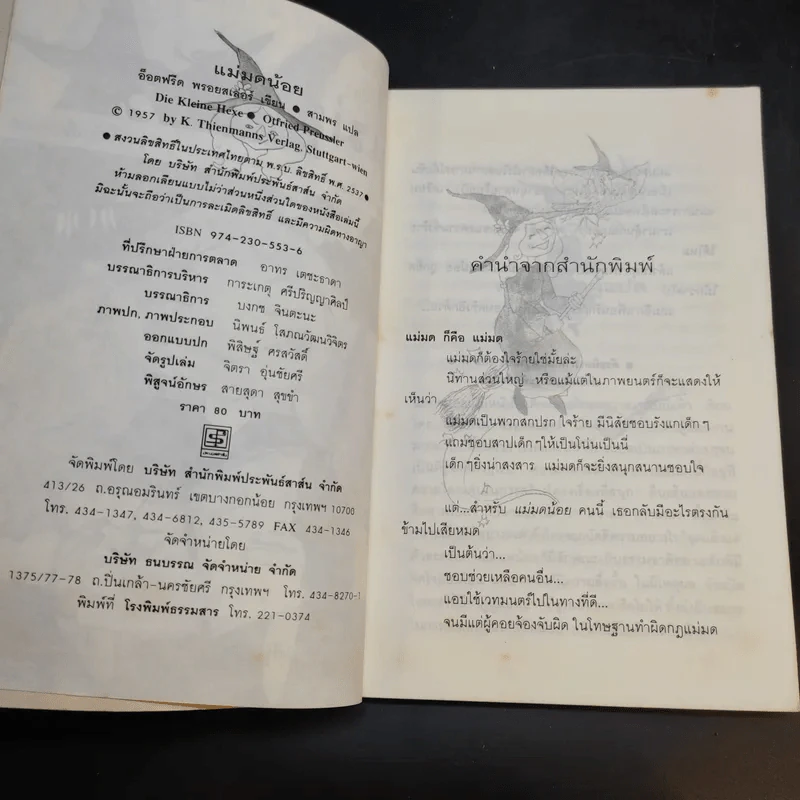 แม่มดน้อย
อ็อตฟรีด พรอยสเลอร์ เขียน ● สามพร แปล
Die Kleine Hexe ● Otfried Preussler
© 1957 by K. Thienmanns Verlag, Stuttgart-wien
● สงวนลิขสิทธิ์ในประเทศไทยตาม พ.ร.บ. ลิขสิทธิ์ พ.ศ. 2537 ●
โดย บริษัท สำนักพิมพ์ประพันธ์สาส์น จำกัด
ห้ามลอกเลียนแบบไม่ว่าส่วนหนึ่งส่วนใดของหนังสือเล่มนี้
มิฉะนั้นจะถือว่าเป็นการละเมิดลิขสิทธิ์ และมีความผิดทางอาญา
ISBN 974-230-553-6
ที่ปรึกษาฝ่ายการตลาด อาทร เตชะธาดา
บรรณาธิการบริหาร การะเกตุ ศรีปริญญาศิลป์
บรรณาธิการ บงกช จินตะนะ
ภาพปก, ภาพประกอบ นิพนธ์ โสภณวัฒนวิจิตร
ออกแบบปก พิสิษฐ์ ศรสวัสดิ์
จัดรูปเล่ม จิตรา อุ่นชัยศรี
พิสูจน์อักษร สายสุตา สุขขำ
ราคา 80 บาท
จัดพิมพ์โดย บริษัท สำนักพิมพ์ประพันธ์สาส์น จำกัด
413/26 ถ.อรุณอมรินทร์ เขตบางกอกน้อย กรุงเทพฯ 10700
โทร. 434-1347, 434-6812, 435-5789 FAX 434-1346
จัดจำหน่ายโดย
บริษัท ธนบรรณ จัดจำหน่าย จำกัด
1375/77-78 ถ.ปิ่นเกล้า-นครชัยศรี กรุงเทพฯ โทร. 434-8270-1
พิมพ์ที่ โรงพิมพ์ธรรมสาร โทร. 221-0374
คำนำจากสำนักพิมพ์
แม่มด ก็คือ แม่มด
แม่มดก็ต้องใจร้ายใช่มั้ยล่ะ
นิทานส่วนใหญ่ หรือแม้แต่ในภาพยนตร์ก็จะแสดงให้
เห็นว่า
แม่มดเป็นพวกสกปรก ใจร้าย มีนิสัยชอบรังแกเด็กๆ
แถมชอบสาปเด็กๆให้เป็นโน่นเป็นนี่
เด็กๆยิ่งน่าสงสาร แม่มดก็จะยิ่งสนุกสนานชอบใจ
แต่...สำหรับ แม่มดน้อย คนนี้ เธอกลับมีอะไรตรงกัน
ข้ามไปเสียหมด
เป็นต้นว่า...
ชอบช่วยเหลือคนอื่น...
แอบใช้เวทมนตร์ไปในทางที่ดี...
จนมีแต่ผู้คอยจ้องจับผิด ในโทษฐานทำผิดกฎแม่มด